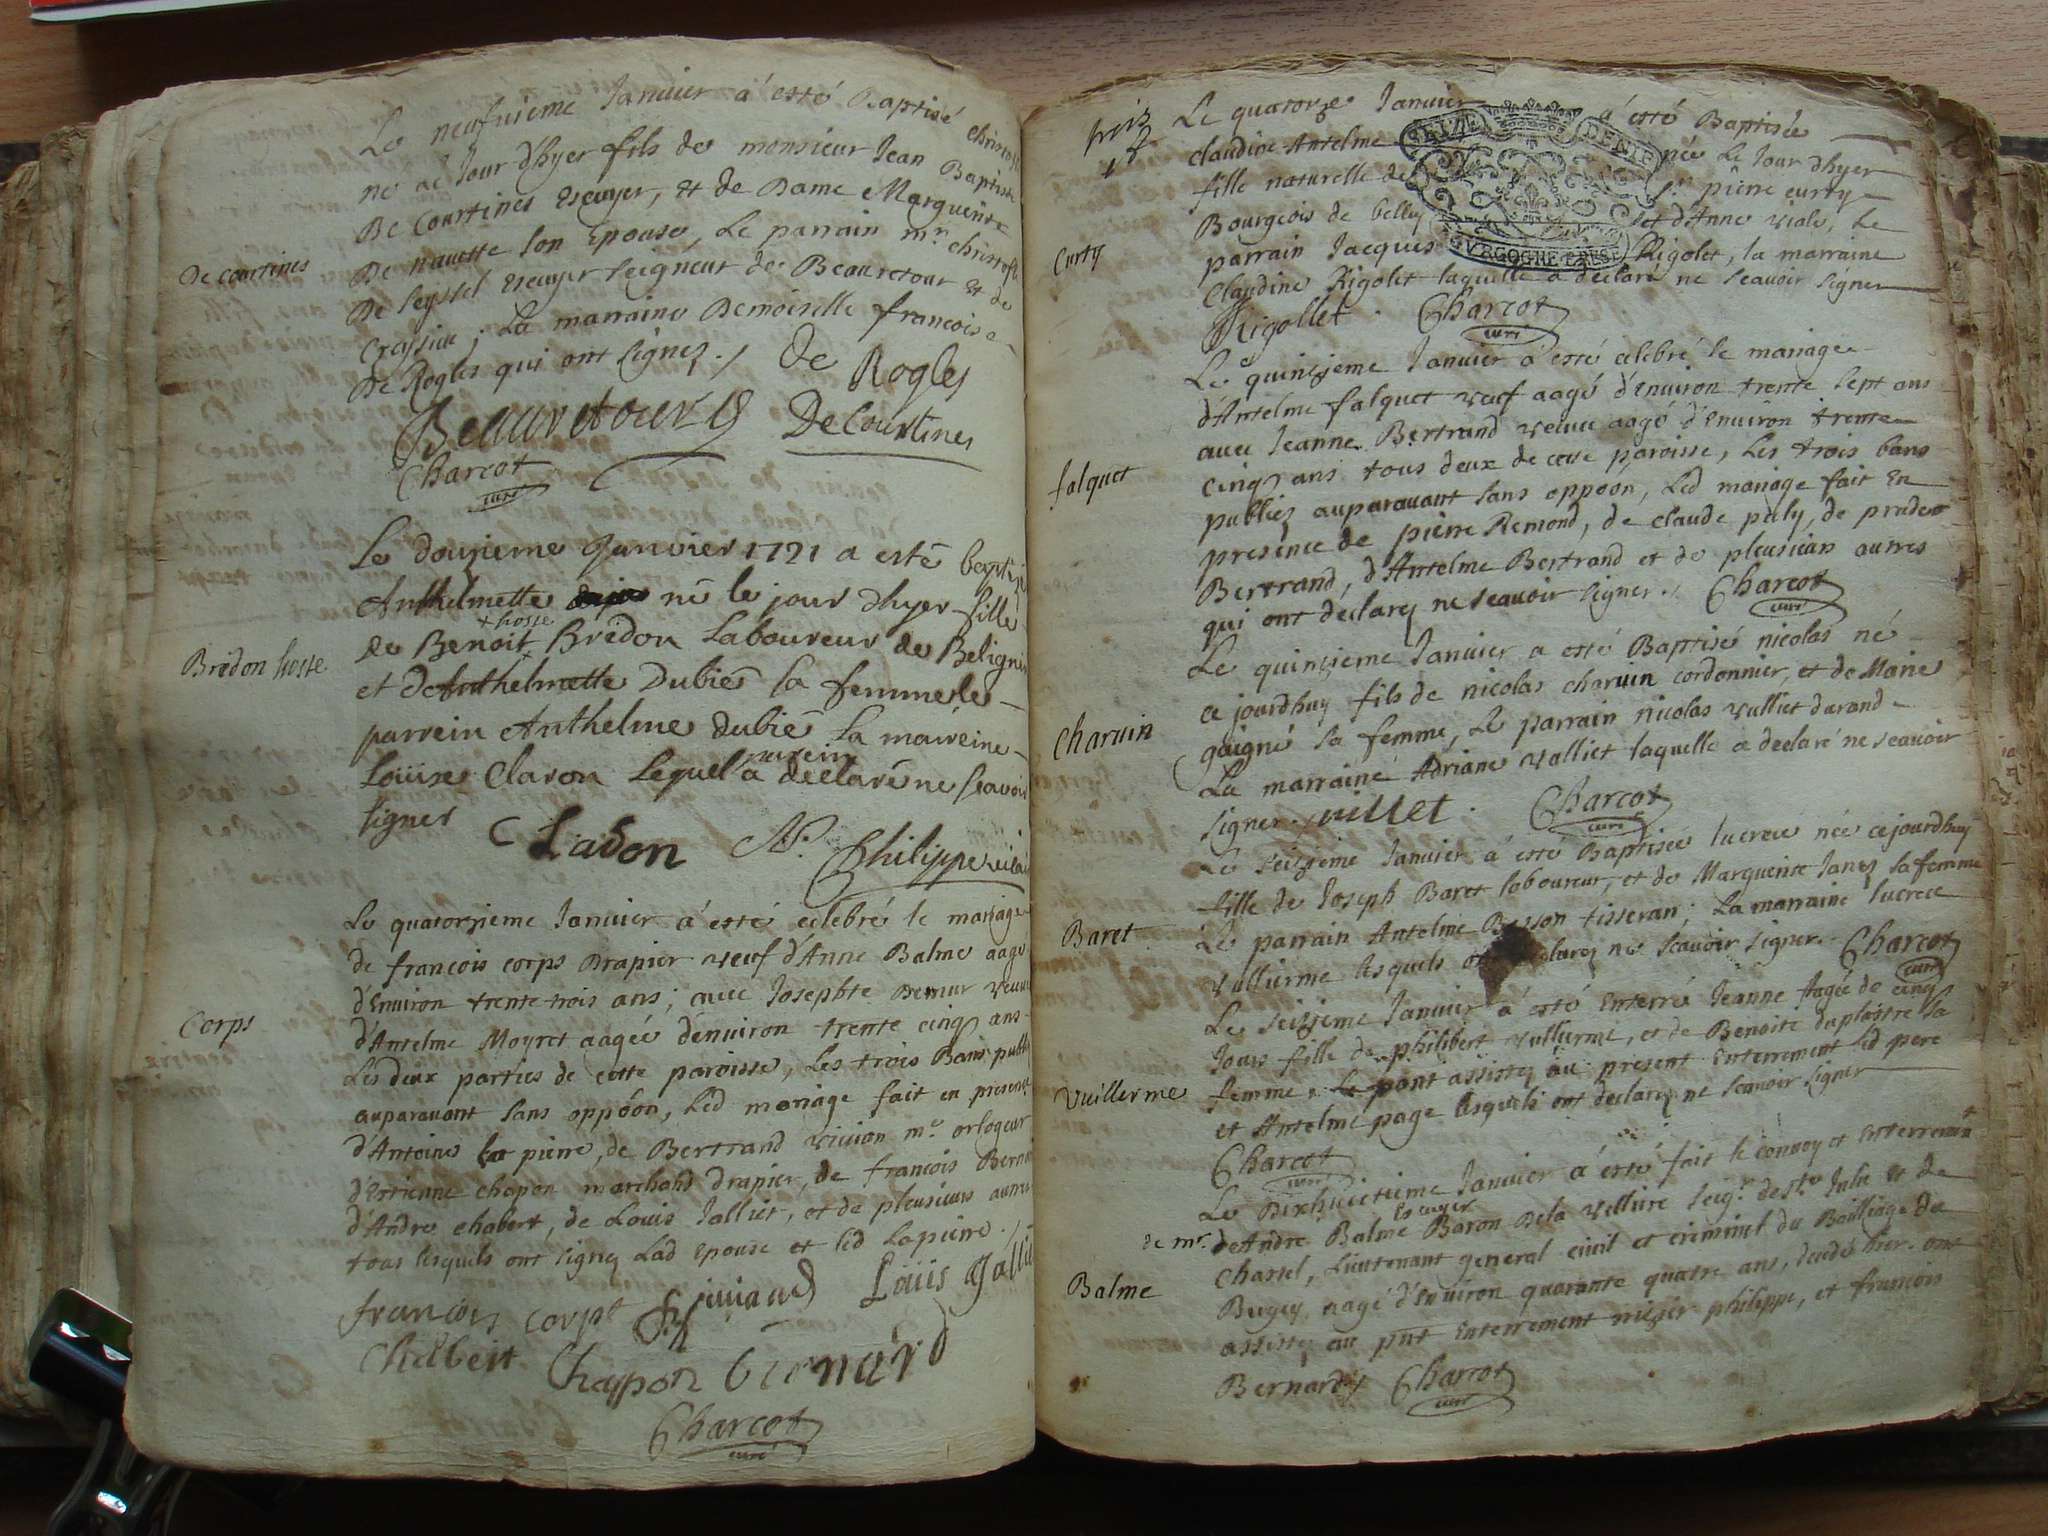 Le neufvieme Janvier a esté Baptisé
né le Jour d'hyer fils de monsieur Jean Baptiste
De Courtines Escuyer, et de Dame Marguerite
De navette son Epouse, Le parrain mr. christofle
De Courtines
De Seyssel Escuyer seigneur de Beauretour et de
Cressieu ; La marraine Demoiselle francoise
De Rogles qui ont signez ./
De Rogles
Beauretour
De Courtines
Charcot
curé
Le douzieme Janvier 1721 a esté baptizé
Anthelmette né le jour d'hyer fille
+ hoste
de Benoit Bredon Laboureur de Belignin
Bredon hoste
et de Anthelmette Dubié sa femme le
parrein Anthelme dubié La maireine
parrein
Louise Claron Lequel a declaré ne scavoir
signer
Philippe vicaire
Le quatorzieme Janvier a esté celebré le mariage
de francois corps Drapier veuf d'Anne Balme aagé
d'Environ trente trois ans ; avec Josephte veuve
Corps
d'Antelme Moyret aagée d'environ trente cinq ans
Les deux parties de cette paroisse, Les trois Bans publiez
auparavant sans oppóon, Led mariage fait en presence
d'Antoine La pierre, de Bertrand vivian me. orlogeur
d'Estienne chapon marchand drapier, de francois Bernard
d'Andre chabert, de Louis Jalliet, et de pleusieurs autres
tous lesquels ont signez Lad Epouse et led Lapierre ./
francois corps
viviand
Louis Jalliet
Chabert
Chappon
Bernard
Charcot
curé
Le quatorze Janvier a esté Baptisée
Claudine Antelme née Le Jour d'hyer
fille naturelle de Sr. pierre curty
Bourgeois de belley et d'Anne viale, Le
Curty
parrain Jacques Rigolet, la marraine
Claudine Rigolet laquelle a declaré ne scavoir signer
Rigollet .
Charcot
curé
Le quinzieme Janvier a esté celebré le mariage
d'Antelme falquet veuf aagé d'Environ trente sept ans
avec Jeanne Bertrand veuve aagé d'Environ trente
falquet
cinq ans tous deux de cette paroisse, Les trois bans
publiez auparavant sans oppóon, Led mariage fait En
presence de pierre Remond, de claude puly, de
Bertrand, d'Antelme Bertrand et de pleusieurs autres
qui ont declarez ne scavoir signer ./
Charcot
curé
Le quinzieme Janvier a esté Baptisé nicolas né
ce jourdhuy fils de nicolas charvin cordonnier, et de Marie
Charvin
guigné sa femme, Le parrain nicolas vulliet
La marraine Adriane valliet laquelle a declaré ne scavoir
signer.
vulliet .
Charcot
curé
Le seizieme Janvier a esté Baptisée lucrece née cejourdhuy
fille de Joseph Baret laboureur, et de Marguerite Janez sa femme
Baret
Le parrain Antelme Besson tisseran ; La marraine lucrece
vullierme lesquels ont declarez ne scavoir signer .
Charcot
curé
Le seizieme Janvier a esté Enterré Jeanne aagée de cinq
Jours fille de philibert vullierme, et de Benoite duplastre sa
Vuillerme
femme . ont assistez au present Enterrement led pere
et Antelme page lesquels ont declarez ne scavoir signer
Charcot
curé
Le Dixhuictieme Janvier a esté fait le convoy et Enterrement
Escuyer
de mr.
de Andre Balme Baron De la Velliere seigr. de ste. Julie et de
Chastel, Lieutenant general civil et criminel du Bailliage de
Balme
Bugey, aagé d'Environ quarante quatre ans, decedé hier. ont
assistez au pnt Enterrement philippe, et francois
Bernardy
Charcot
curé